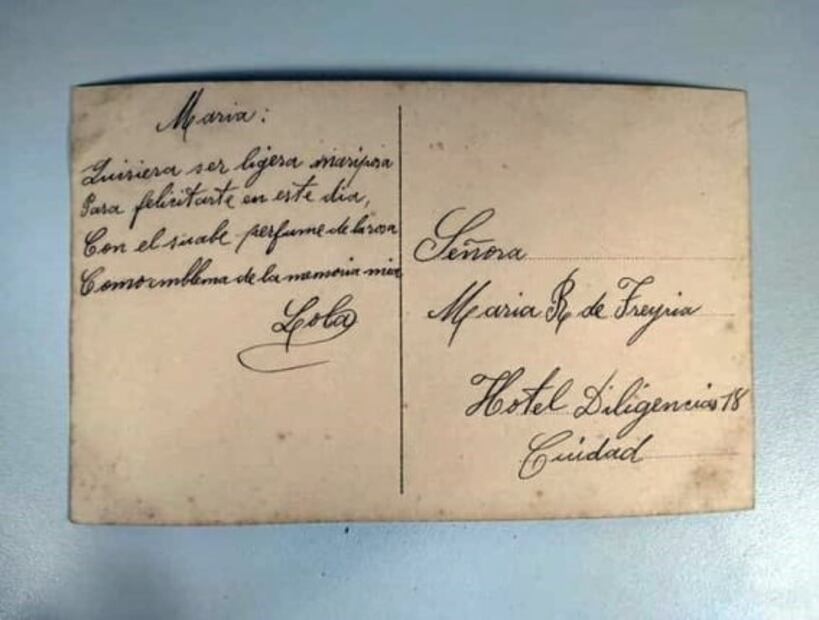 Maria:
Quisiera ser ligera mariposa
Para felicitarte en este dia,
Con el suabe perfume de la rosa
Como emblema de la memoria mia
Lola
Señora
Maria R. de Freyria
Hotel Diligencias 18
Ciudad